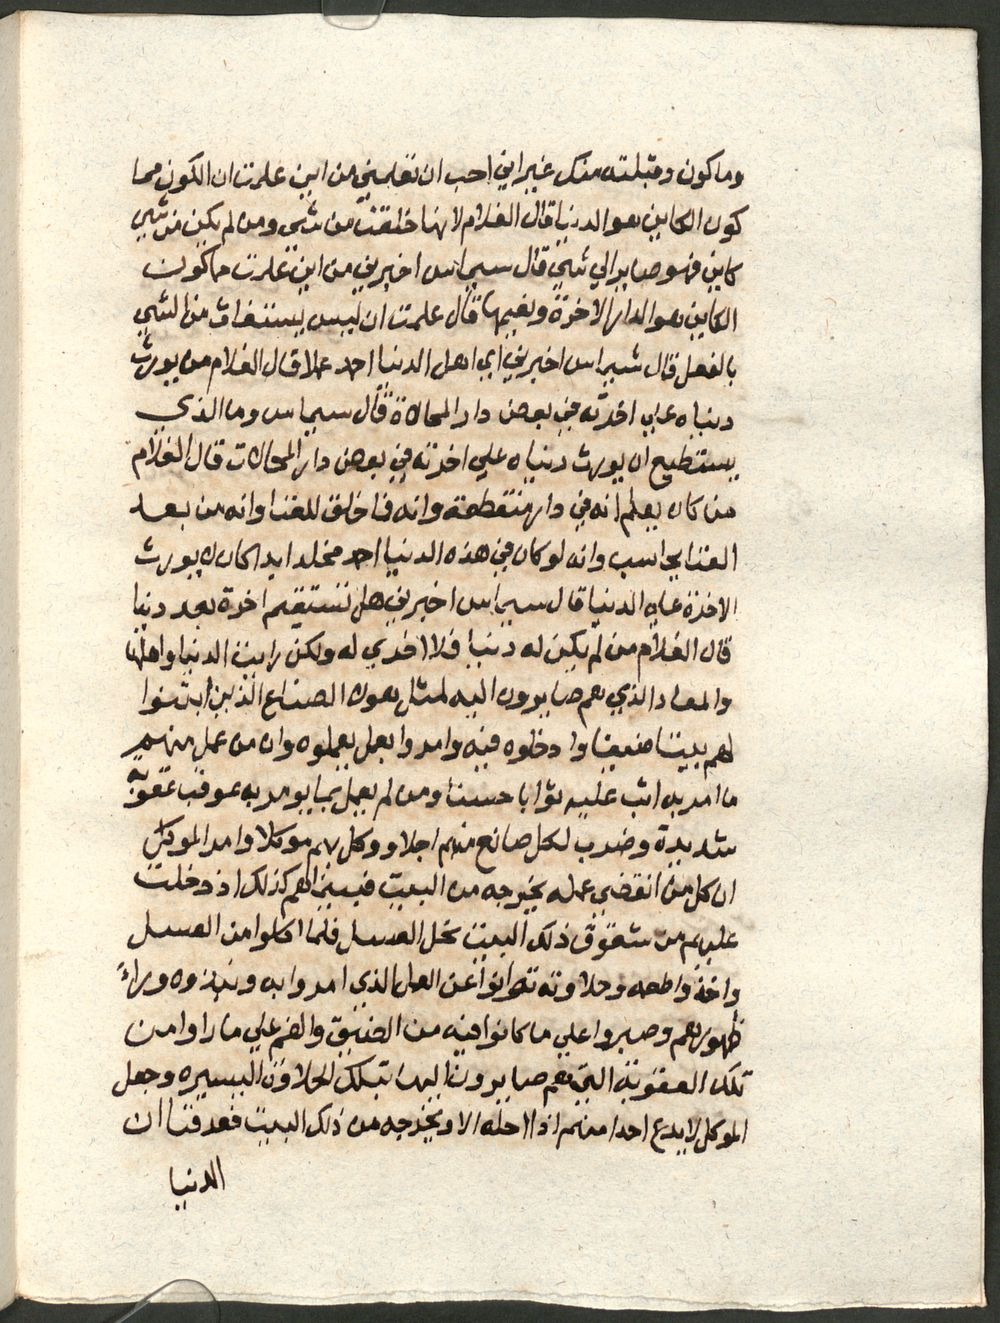 وما كون وقبلته منك غير اني احب ان تعلمني من اين علمت ان الكون مما
كون الكاين هو الدنيا قال الغلام لانها خلقت من شي ومن لم يكن من شي
كاين فهو صاير الي شي قال سيماس اخبرني من اين علمت ما كون
الكاين هو الدار الاخرة ونعيمها قال علمت ان ليس يستغاث من الشي
بالفعل قال شيراس اخبرني اي اهل الدنيا احمد عملا قال الغلام من يورث
دنياه علي اخرته في بعض دار المحاكاة قال سيماس وما الذي
يستطيع ان يورث دنياه علي اخرته في بعض دار المحاكات قال الغلام
من كان يعلم انه في دار منقطعة وانه فا خلق للفنا وانه من بعد
الفنا يحاسب وانه لو كان في هذه الدنيا احد مخلد ابدا كان لا يورث
الاخرة علي الدنيا قال سيماس اخبرني هل تستقيم اخرة بعد دنيا
قال الغلام من لم يكن له دنيا فلا اخري له ولكن رايت الدنيا واهلها
والمعاد الذي هم صايرون اليه لمثل هولا الصناع الذين ابتنوا
لهم بيتا ضيقا وادخلوه فيه وامروا بعمل يعملوه وان من عمل منهم
ما امر به اثيب عليه ثوابا حسنا ومن لم يعمل بما يومر به عوقب عقوبة
شديدة وضرب لكل صانع منهم اجلا ووكل بهم موكلا وامر الموكل
ان كل من انقضي عمله يخرجه من البيت فبينما هم كذلك اذ دخلت
عليهم من شقوق ذلك البيت نحل العسل فلما اكلوا من العسل
واخذ واطعمه وحلاوته تهوانوا عن العمل الذي امروا به ونبذوه وراء
ظهورهم وصبروا علي ما كانوا فيه من الضيق والغم علي ما راوا من
تلك العقوبة التي هم صايرون اليها بتلك الحلاوة اليسيره وجعل
الموكل لا يدع احدا منهم اذا جا اجله الا ويخرجه من ذلك البيت فعرفنا ان
الدنيا